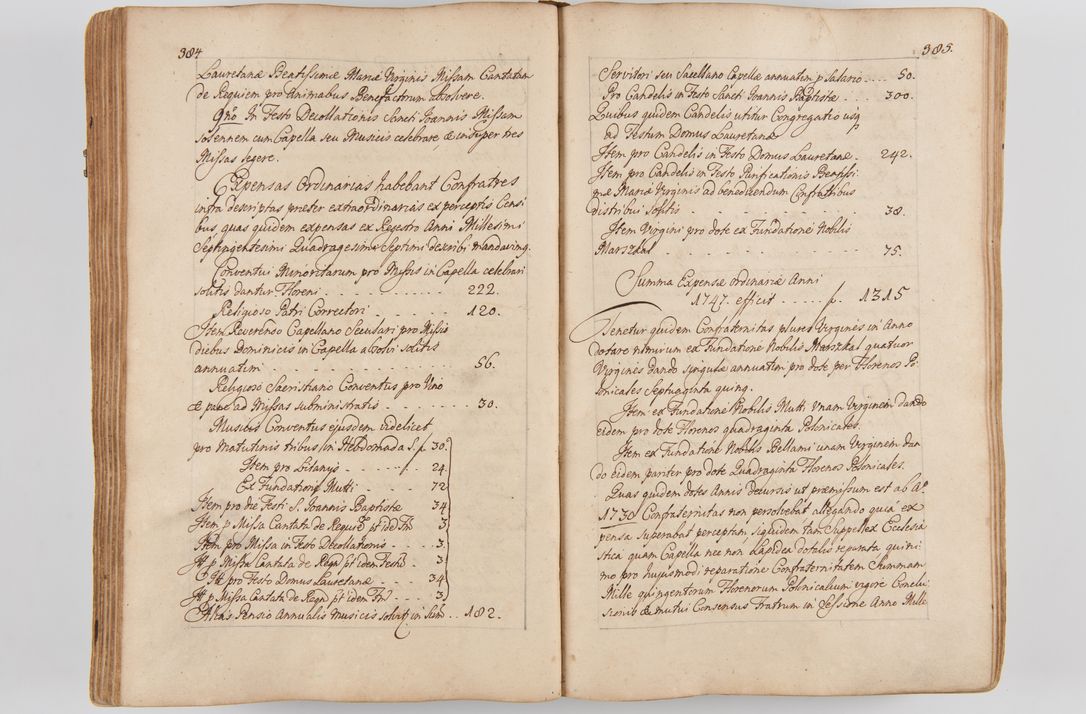 384
Lauretanæ Beatissimæ Mariæ Virginis Missam Cantatam
de Requiem pro Animabus Benefactorum absolvere.
In Festo Decollationis Sancti Joannis Missam
solennem cum Capella seu Musicis celebrare, & insuper tres
Missas legere.
Expensas Ordinarias habebant Confratres
infra descriptas præter extraordinarias ex perceptis Censi
bus, quas quidem expensas ex Regestro Anni Millesimi
Septingentesimi Quadragesimi Septimi describi mandavimus.
Conventui Minoritarum pro Missis in Capella celebrari
solitis dantur Floreni - - - - - - - 222.
Religioso Patri Correctori - - - - - 120.
Item Reverendo Capellano Sæculari pro Missis
diebus Dominicis in Capella absolvi solitis
annuatim - - - - - - - - - - 56.
Religioso Sacristiano Conventus pro Vino
& pane ad Missas subministratis - - - - - - 30.
Musicis Conventus ejusdem videlicet
pro Matutinis tribus in Hebdomada S. f. 30.
Item pro Litanijs - - - - - f. 24.
Ex Fundatione Mutti - - - - 72
Item pro die Festi S. Joannis Baptistæ 34
Item p Missa Cantata de Requie pt idem Fm 3
Item pro Missa in Festo Decollationis - - - 3.
It p Missa Cantata de Requ pt idem Festu 3
It pro Festo Domus Lauretanæ - - - - 34
It p Missa Cantata de Requ pt idem Fm 3
Alias Pensio Annualis Musicis solvit in Sum - - 182.
385.
Servitori seu Sacellano Capellæ annuatim p Salario - - - - 50.
Pro Candelis in Festo Sancti Joannis Baptistæ - - - 300.
Quibus quidem Candelis utitur Congregatio usq
ad Festum Domus Lauretanæ
Item pro Candelis in Festo Domus Lauretanæ - 242.
Item pro Candelis in Festo Purificationis Beatissi
mæ Mariæ Virginis ad benedicendum Confratribus
distribui solitis - - - - - - - - - 38.
Item Virgini pro dote ex Fundatione Nobilis
Marszkal - - - - - - - - - - 75.
Summa Expensæ ordinariæ Anni
1747. efficit - - - - f. 1315
Tenetur quidem Confraternitas plures Virgines in Anno
dotare nimirum ex Fundatione Nobilis Marszkal quatuor
Virgines dando singulæ annuatim pro dote per Florenos Po
lonicales Septuaginta quinq.
Item ex Fundatione Nobilis Mutti unam Virginem dando
eidem pro dote Florenos quadraginta Polonicales.
Item ex Fundatione Nobilis Bellami unam Virginem dan
do eidem pariter pro dote Quadraginta Florenos Polonicales.
Quas quidem dotes Annis decursis ut præmissum est ab Ao
1730 Confraternitas non persolvebat allegando quia ex
pensa superabat perceptam, siquidem tam Suppellex Ecclesia
stica quam Capella nec non Lapidea dotalis reparata quini
mo pro hujusmodi reparatione Confraternitatem Summam
Mille quingentorum Florenorum Polonicalium vigore Conclu
sionis & mutui Consensus Fratrum in Sessione Anno Mille